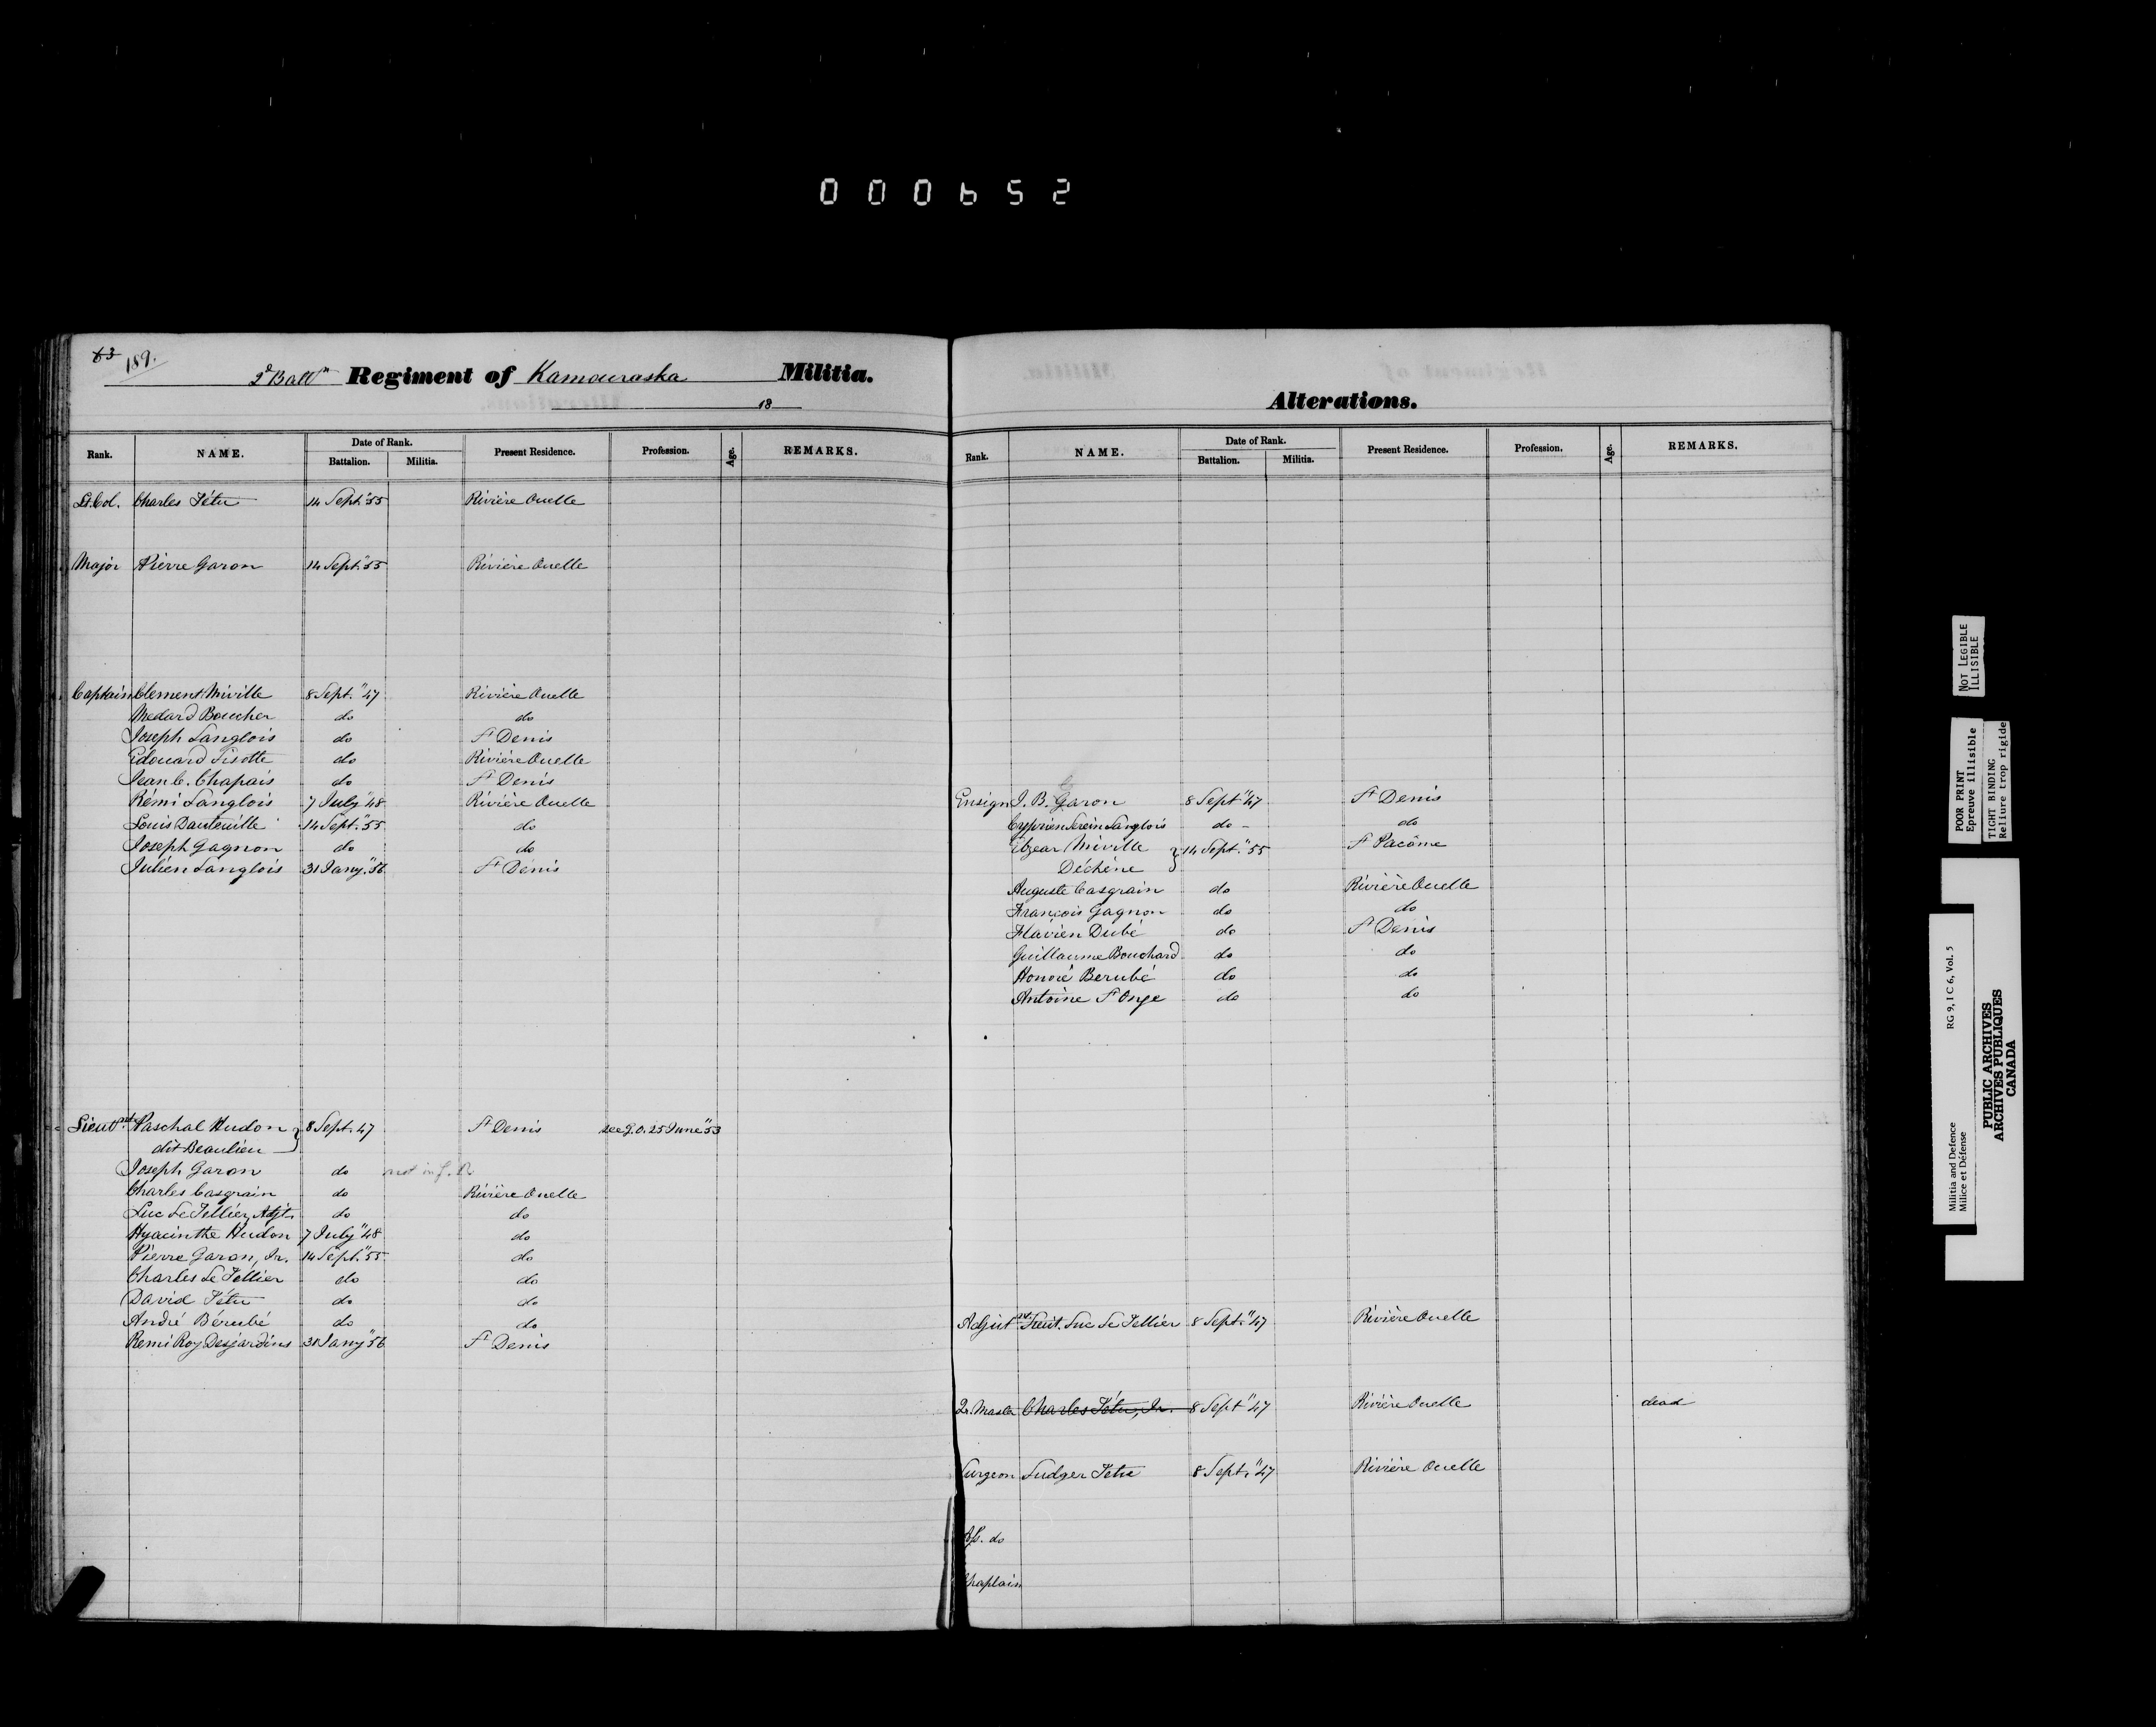 000652
63 189.
2d Battn Regiment of Kamouraska Militia.
18
Rank. NAME. Date of Rank. Battalion. Militia. Present Residence. Profession. Age. REMARKS.
Lt. Col. Charles Têtu 14 Sept. "55 Rivière Ouelle
Major Pierre Garon 14 Sept. "55 Rivière Ouelle
Captain Clement Miville 8 Sept. "47 Rivière Ouelle
Medard Boucher do do
Joseph Langlois do St Denis
Edouard Lisotte do Rivière Ouelle
Jean C. Chapais do St Denis
Rémi Langlois 7 July "48 Rivière Ouelle
Louis Dauteuille 14 Sept. "55 do
Joseph Gagnon do do
Julien Langlois 31 Jany. "56 St Denis
Lieutnt Paschal Hudon } 8 Sept. 47 St Denis see G.O. 25 June "53
dit Beaulieu
Joseph Garon do not in
Charles Casgrain do Rivière Ouelle
Luc Le Tellier, Adjt. do do
Hyacinthe Hudon 7 July "48 do
Pierre Garon, Jr. 14 Sept. "55 do
Charles Le Tellier do do
David Têtu do do
André Bérubé do do
Remi Roy Desjardins 31 Jany "56 St Denis
Alterations.
Rank. NAME. Date of Rank. Battalion. Militia. Present Residence. Profession. Age. REMARKS.
Ensign J. B. Garon 8 Sept "47 St Denis
Cyprien Serein Langlois do - do
Elzear Miville } 14 Sept. "55 St Pacôme
Déchène
Auguste Casgrain do Rivière Ouelle
François Gagnon do do
Flavien Dubé do St Denis
Guillaume Bouchard do do
Honoré Berubé do do
Antoine St Onge do do
Adjutnt Lieut. Luc Le Tellier 8 Sept. "47 Rivière Ouelle
Qr. Master Charles Têtu, Jr. 8 Sept "47 Rivière Ouelle dead
Surgeon Ludger Tetu 8 Sept. "47 Rivière Ouelle
Ass. do
Chaplain
NOT LEGIBLE
ILLISIBLE
POOR PRINT
Epreuve illisible
TIGHT BINDING
Reliure trop rigide
Militia and Defence RG 9, I C 6, Vol. 5
Milice et Défense
PUBLIC ARCHIVES
ARCHIVES PUBLIQUES
CANADA